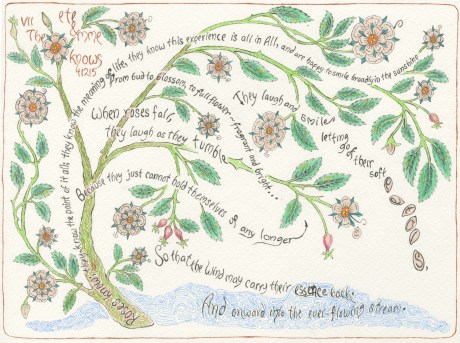 VII
The
knows
they know the point of it all; they know the meaning of life, they know this experience is all in All, and are happy to smile broadly in the sunshine
From bud to blossom, to full flower - fragrant and bright...
They laugh and
smile
letting
go of their
soft
When roses fall,
they laugh as they tumble
Because they just cannot hold themselves any longer
So that the wind may carry their essence back.
And onward into the ever-flowing stream.